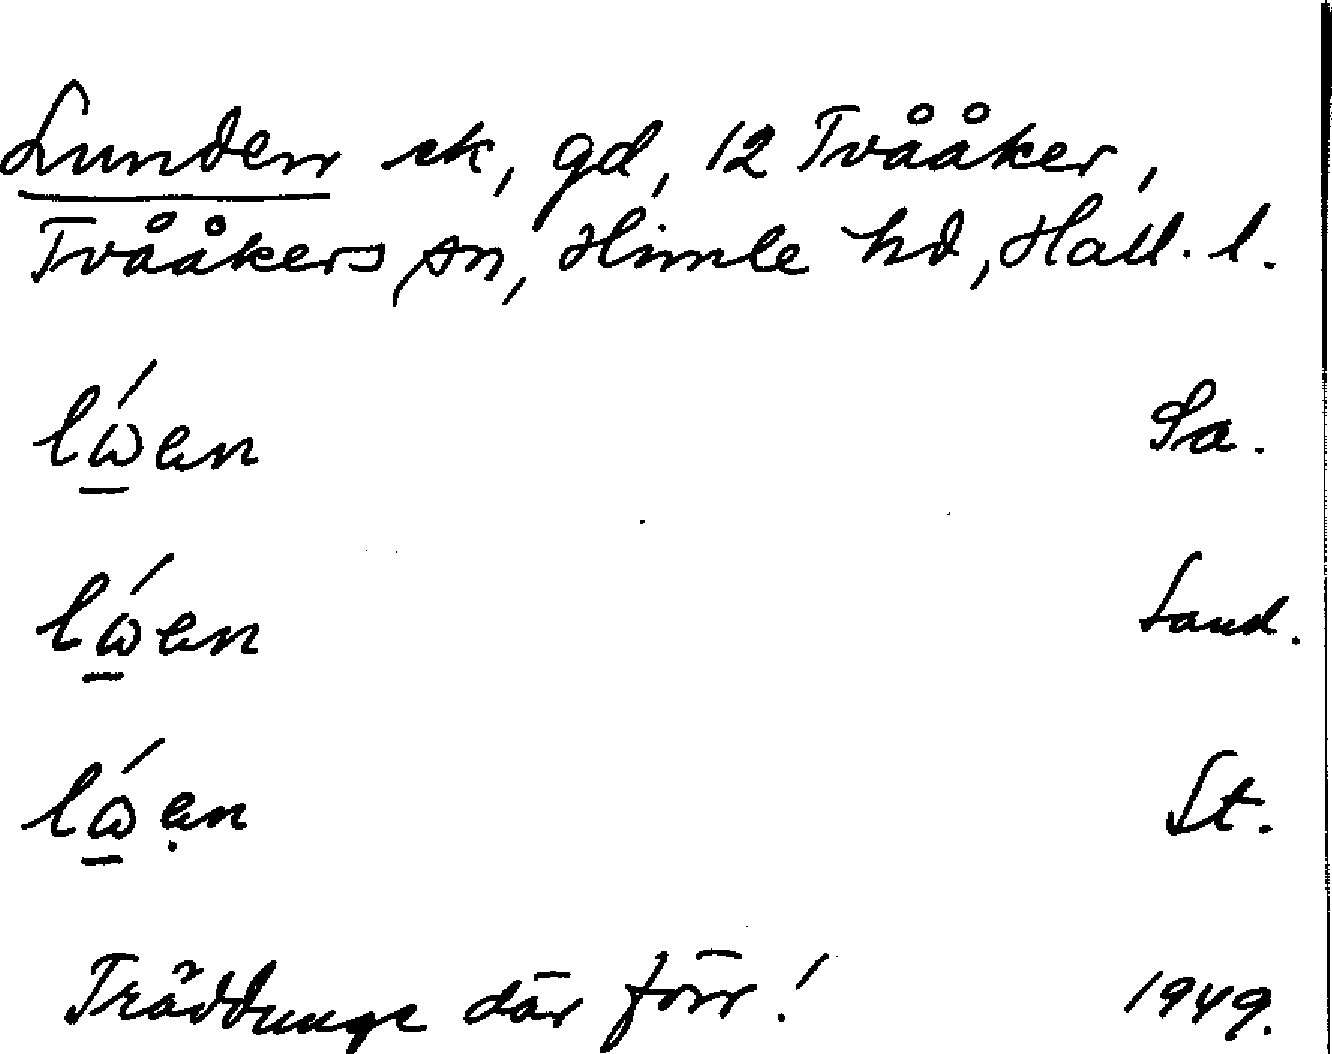 Lunden sk, gd, 12 Tvååker,
Tvååkers sn, Himle hd, Hall. l.
lώen Sa.
lώen Sand.
lώẹn St.
Träddunge där förr! 1949.